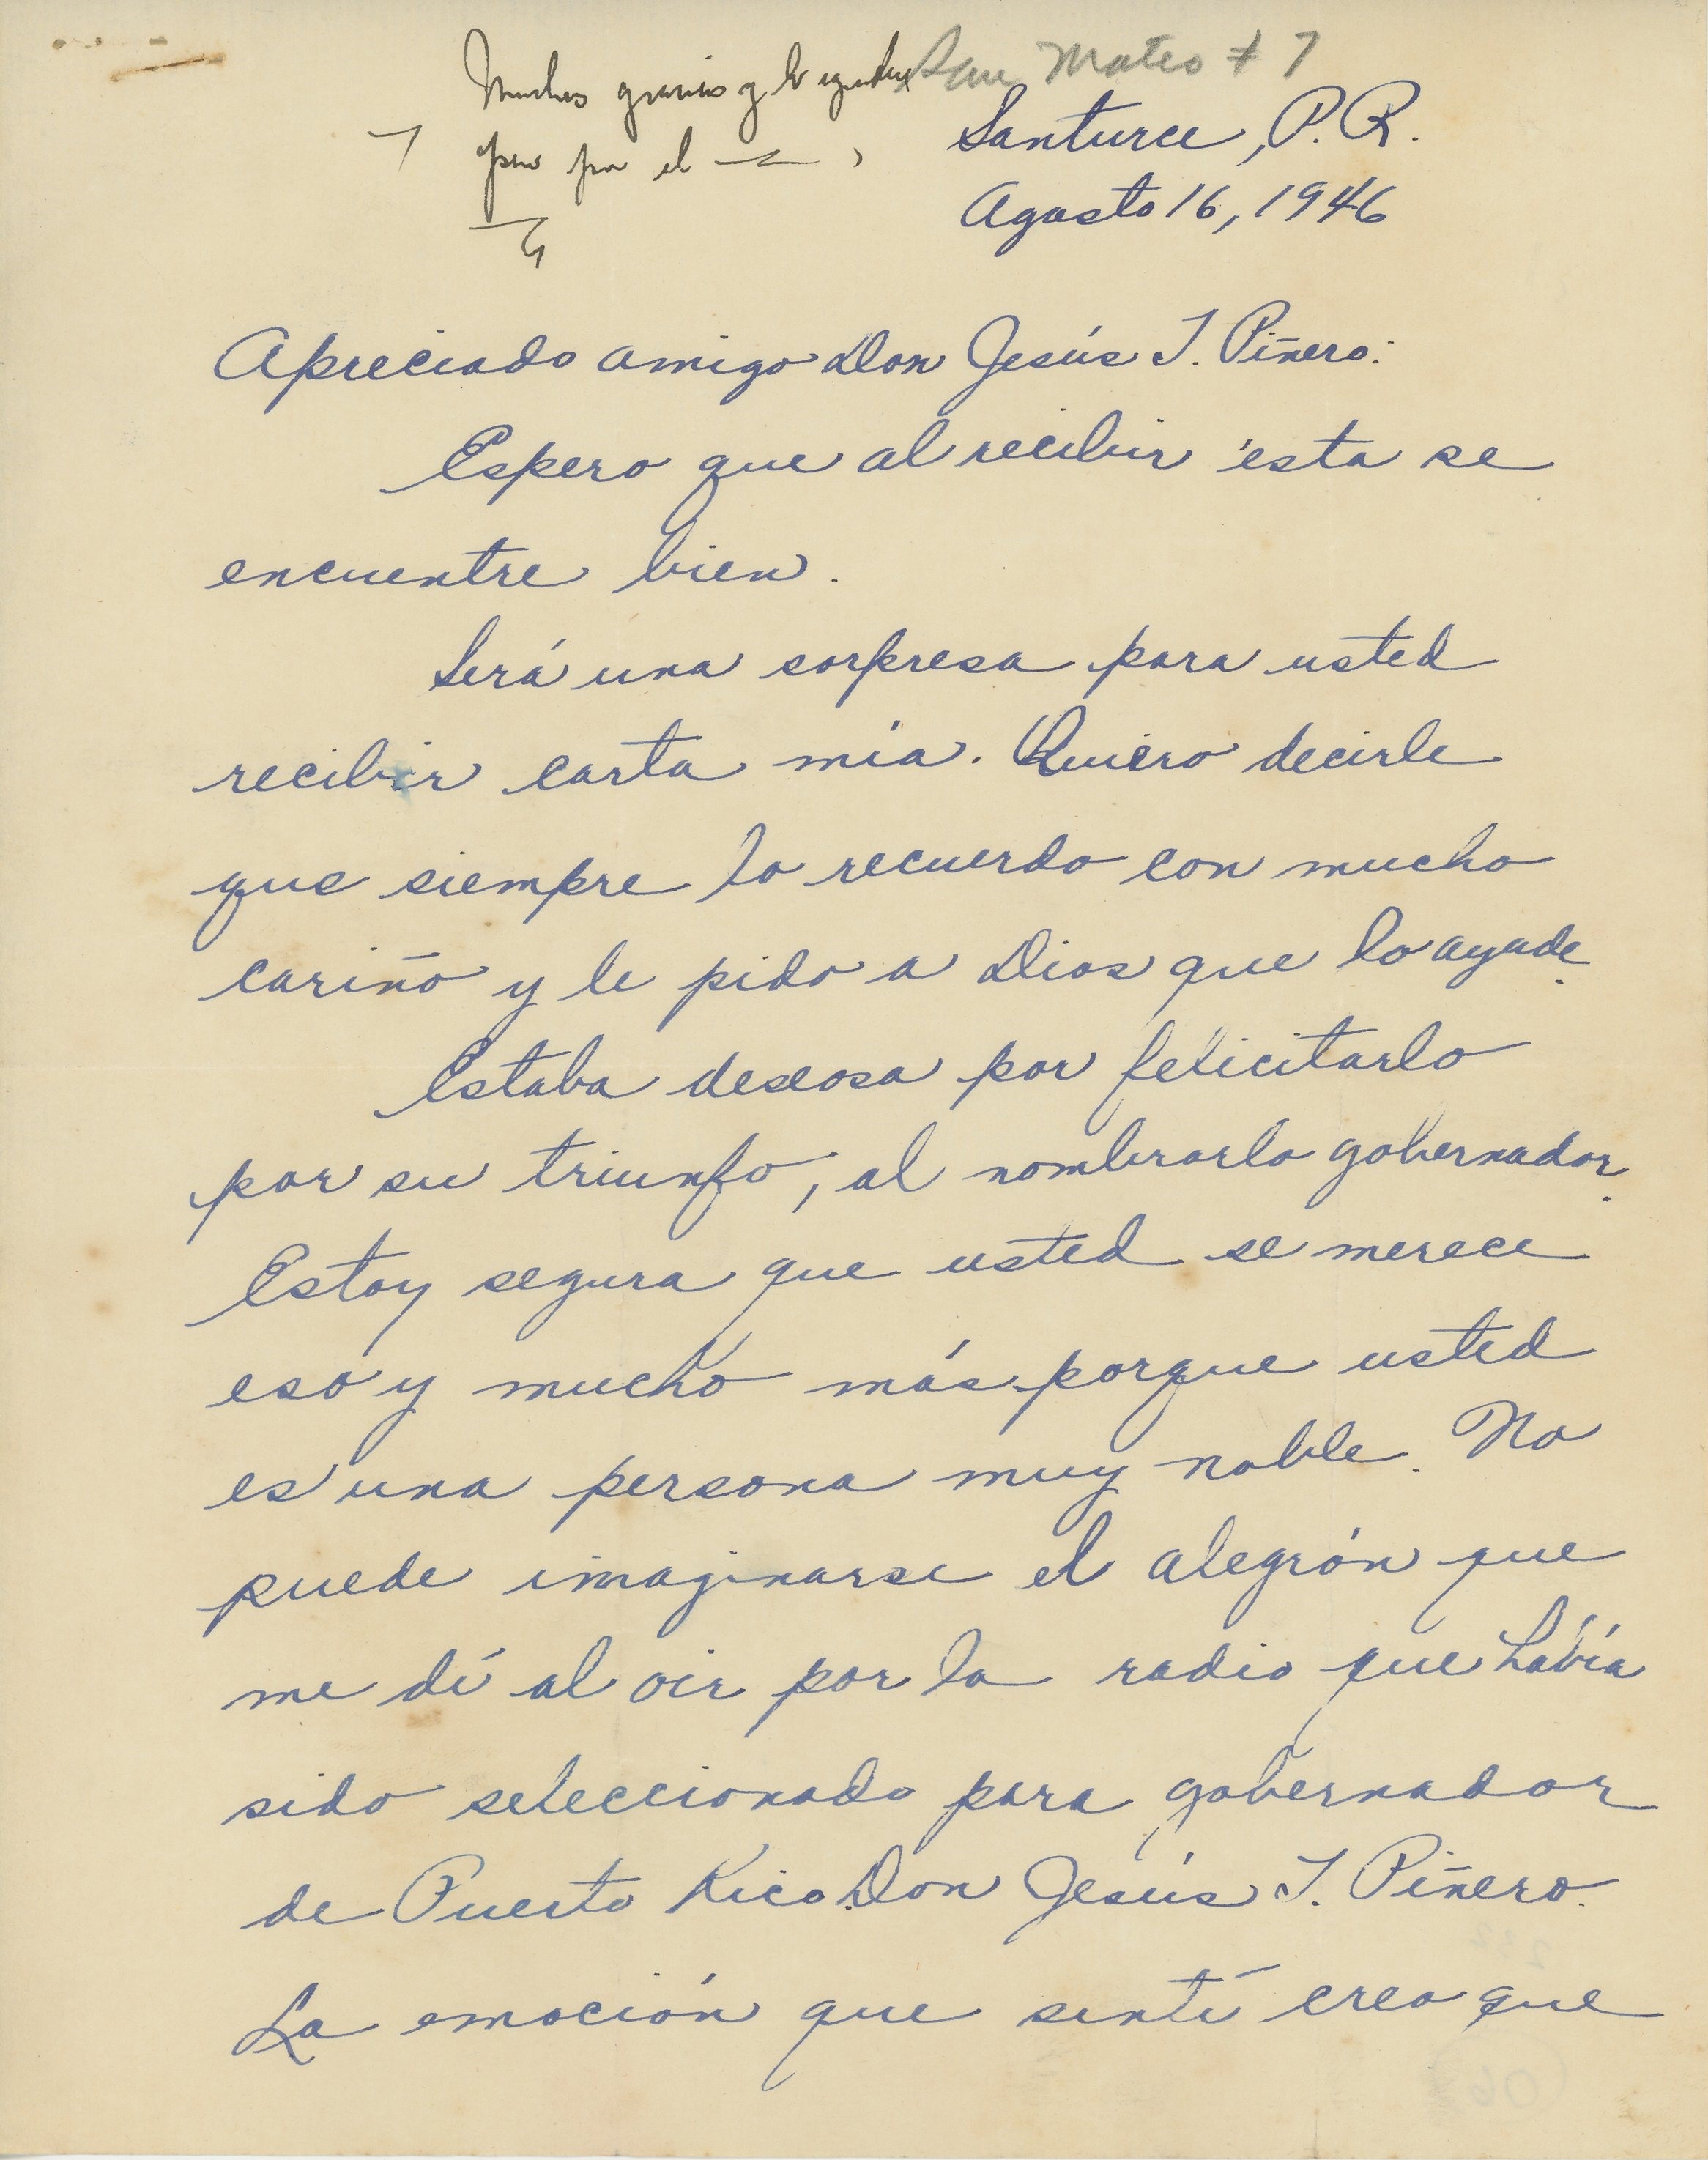 Muchas gracias y le
San Mateo # 7
por el
Santurce, P. R.
Agosto 16, 1946
Apreciado amigo Don Jesús T. Piñero:
Espero que al recibir ésta se
encuentre bien.
Será una sorpresa para usted
recibir carta mía. Quiero decirle
que siempre lo recuerdo con mucho
cariño y le pido a Dios que lo ayude.
Estaba deseosa por felicitarlo
por su triunfo, al nombrarlo gobernador.
Estoy segura que usted se merece
eso y mucho más porque usted
es una persona muy noble. No
puede imaginarse el alegrón que
me dí al oir por la radio que había
sido seleccionado para gobernador
de Puerto Rico Don Jesús T. Piñero.
La emoción que sentí creo que